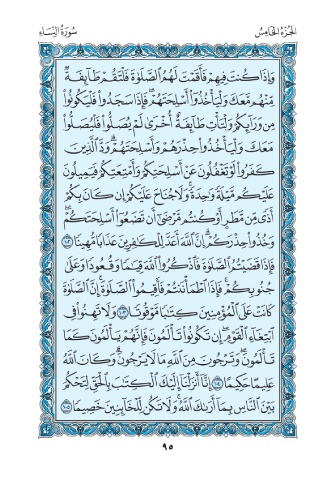 سُورَةُ النِّسَاءِ
الجُزْءُ الخَامِسُ
وَإِذَا كُنتَ فِيهِمْ فَأَقَمْتَ لَهُمُ ٱلصَّلَوٰةَ فَلْتَقُمْ طَآئِفَةٌ
مِّنْهُم مَّعَكَ وَلْيَأْخُذُوٓا۟ أَسْلِحَتَهُمْ فَإِذَا سَجَدُوا۟ فَلْيَكُونُوا۟
مِن وَرَآئِكُمْ وَلْتَأْتِ طَآئِفَةٌ أُخْرَىٰ لَمْ يُصَلُّوا۟ فَلْيُصَلُّوا۟
مَعَكَ وَلْيَأْخُذُوا۟ حِذْرَهُمْ وَأَسْلِحَتَهُمْ ۗ وَدَّ ٱلَّذِينَ
كَفَرُوا۟ لَوْ تَغْفُلُونَ عَنْ أَسْلِحَتِكُمْ وَأَمْتِعَتِكُمْ فَيَمِيلُونَ
عَلَيْكُم مَّيْلَةً وَٰحِدَةً ۚ وَلَا جُنَاحَ عَلَيْكُمْ إِن كَانَ بِكُمْ
أَذًى مِّن مَّطَرٍ أَوْ كُنتُم مَّرْضَىٰٓ أَن تَضَعُوٓا۟ أَسْلِحَتَكُمْ ۖ
وَخُذُوا۟ حِذْرَكُمْ ۗ إِنَّ ٱللَّهَ أَعَدَّ لِلْكَٰفِرِينَ عَذَابًا مُّهِينًا ١٠٢
فَإِذَا قَضَيْتُمُ ٱلصَّلَوٰةَ فَٱذْكُرُوا۟ ٱللَّهَ قِيَٰمًا وَقُعُودًا وَعَلَىٰ
جُنُوبِكُمْ ۚ فَإِذَا ٱطْمَأْنَنتُمْ فَأَقِيمُوا۟ ٱلصَّلَوٰةَ ۚ إِنَّ ٱلصَّلَوٰةَ
كَانَتْ عَلَى ٱلْمُؤْمِنِينَ كِتَٰبًا مَّوْقُوتًا ١٠٣ وَلَا تَهِنُوا۟ فِى
ٱبْتِغَآءِ ٱلْقَوْمِ ۖ إِن تَكُونُوا۟ تَأْلَمُونَ فَإِنَّهُمْ يَأْلَمُونَ كَمَا
تَأْلَمُونَ ۖ وَتَرْجُونَ مِنَ ٱللَّهِ مَا لَا يَرْجُونَ ۗ وَكَانَ ٱللَّهُ
عَلِيمًا حَكِيمًا ١٠٤ إِنَّآ أَنزَلْنَآ إِلَيْكَ ٱلْكِتَٰبَ بِٱلْحَقِّ لِتَحْكُمَ
بَيْنَ ٱلنَّاسِ بِمَآ أَرَىٰكَ ٱللَّهُ ۚ وَلَا تَكُن لِّلْخَآئِنِينَ خَصِيمًا ١٠٥
٩٥